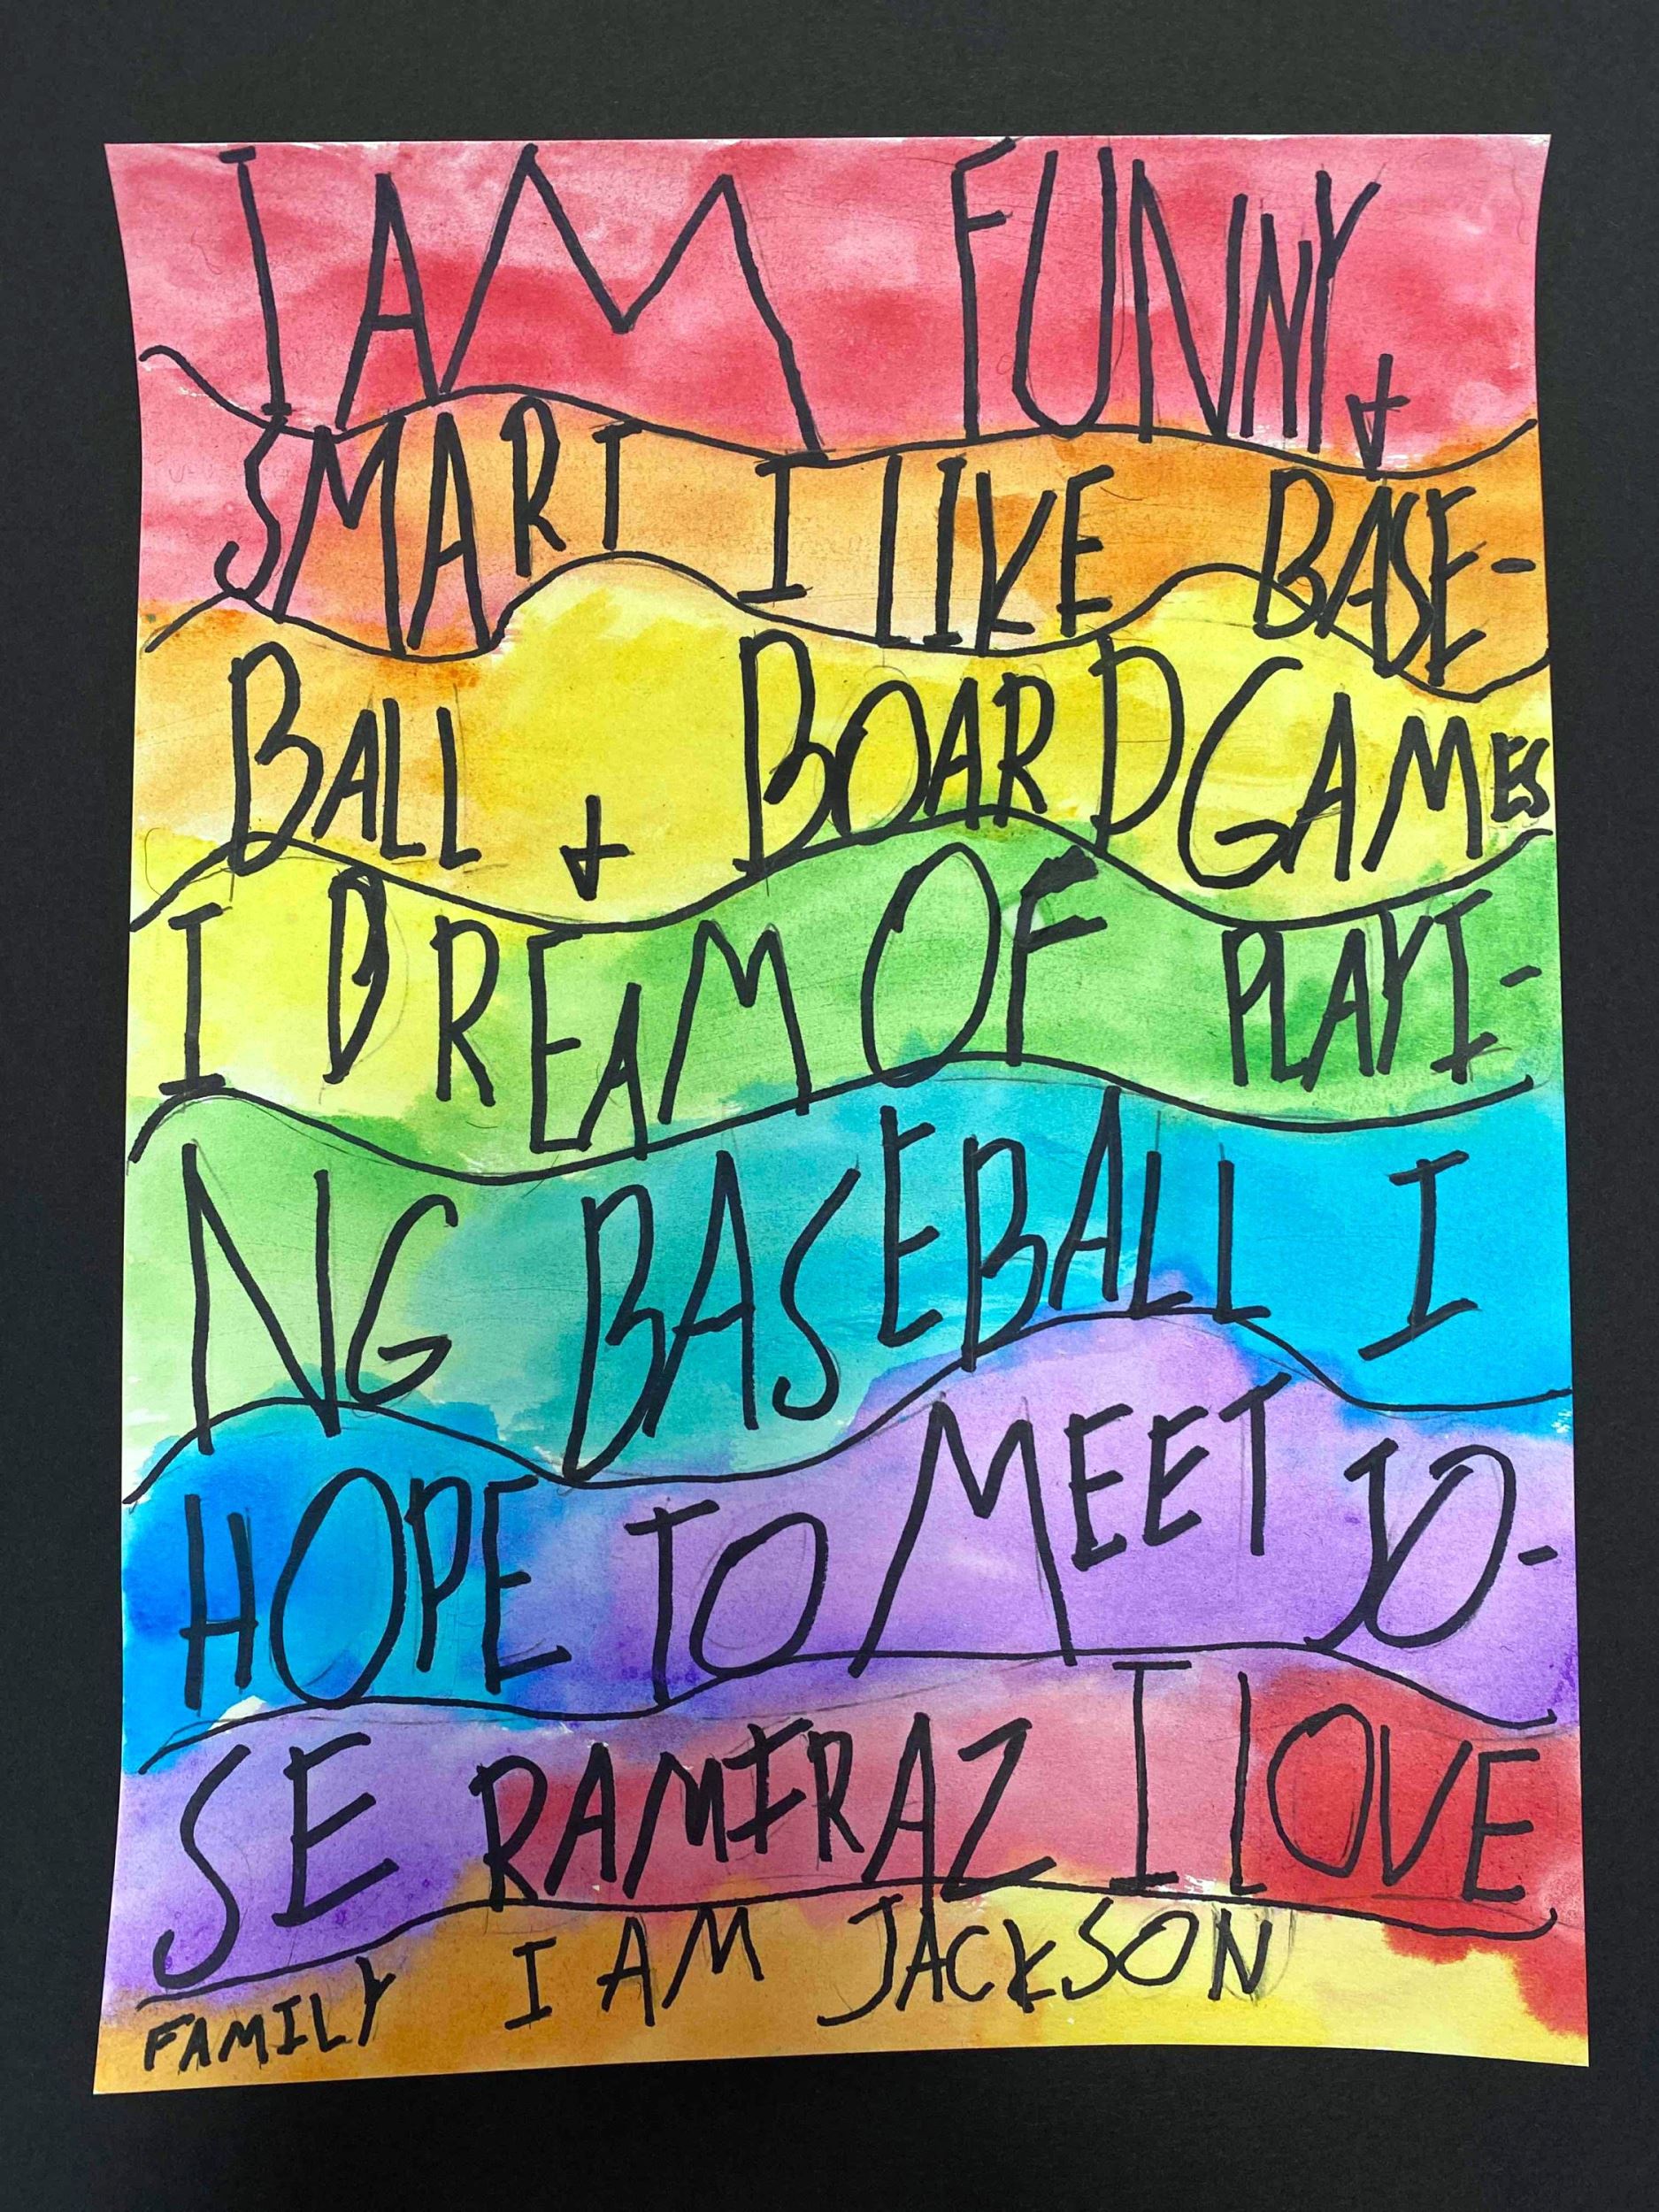 I AM FUNNY +
SMART I LIKE BASE-
BALL + BOARDGAMES
I DREAM OF PLAYI-
NG BASEBALL I
HOPE TO MEET JO-
SE RAMIRAZ I LOVE
FAMILY I AM JACKSON